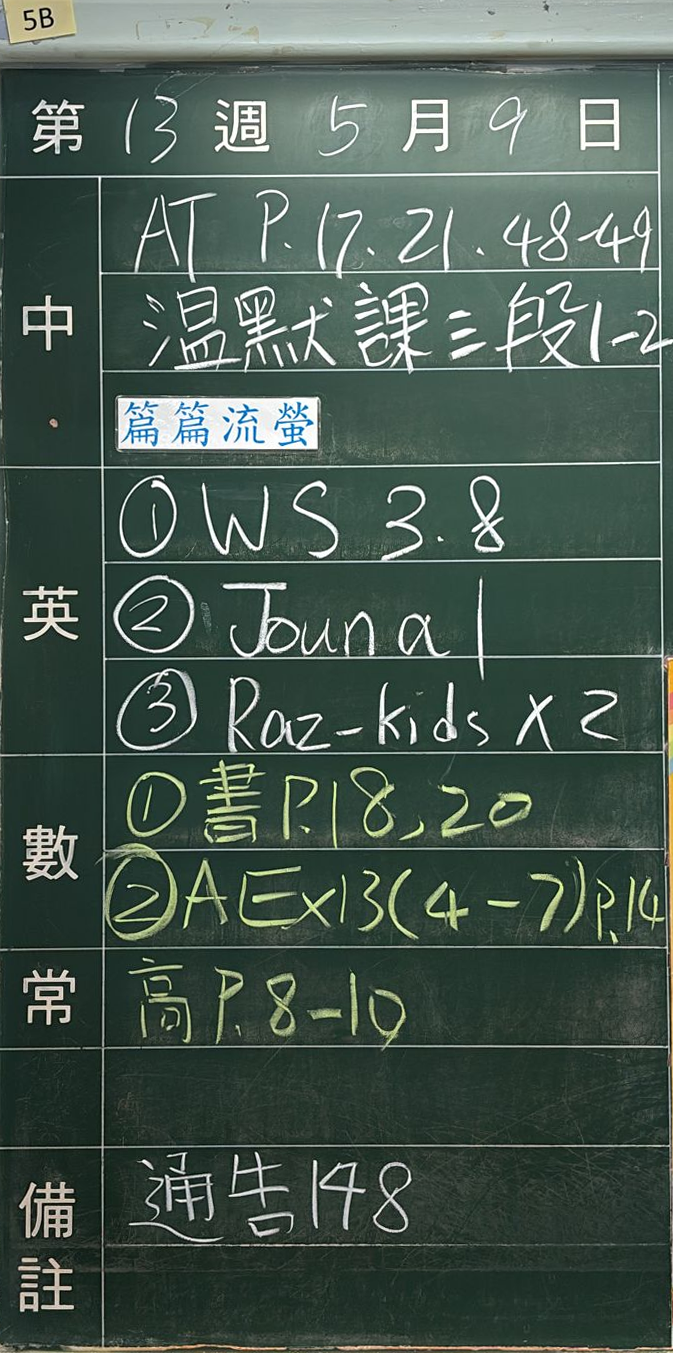 5B
第 13 週 5 月 9 日
中
AT P.17.21.48-49
温默課三段1-2
篇篇流螢
英
①WS 3.8
②Jounal
③Raz-kids x 2
數
①書P.18,20
②AEx13(4-7)P.14
常
高P.8-10
備註
通告148